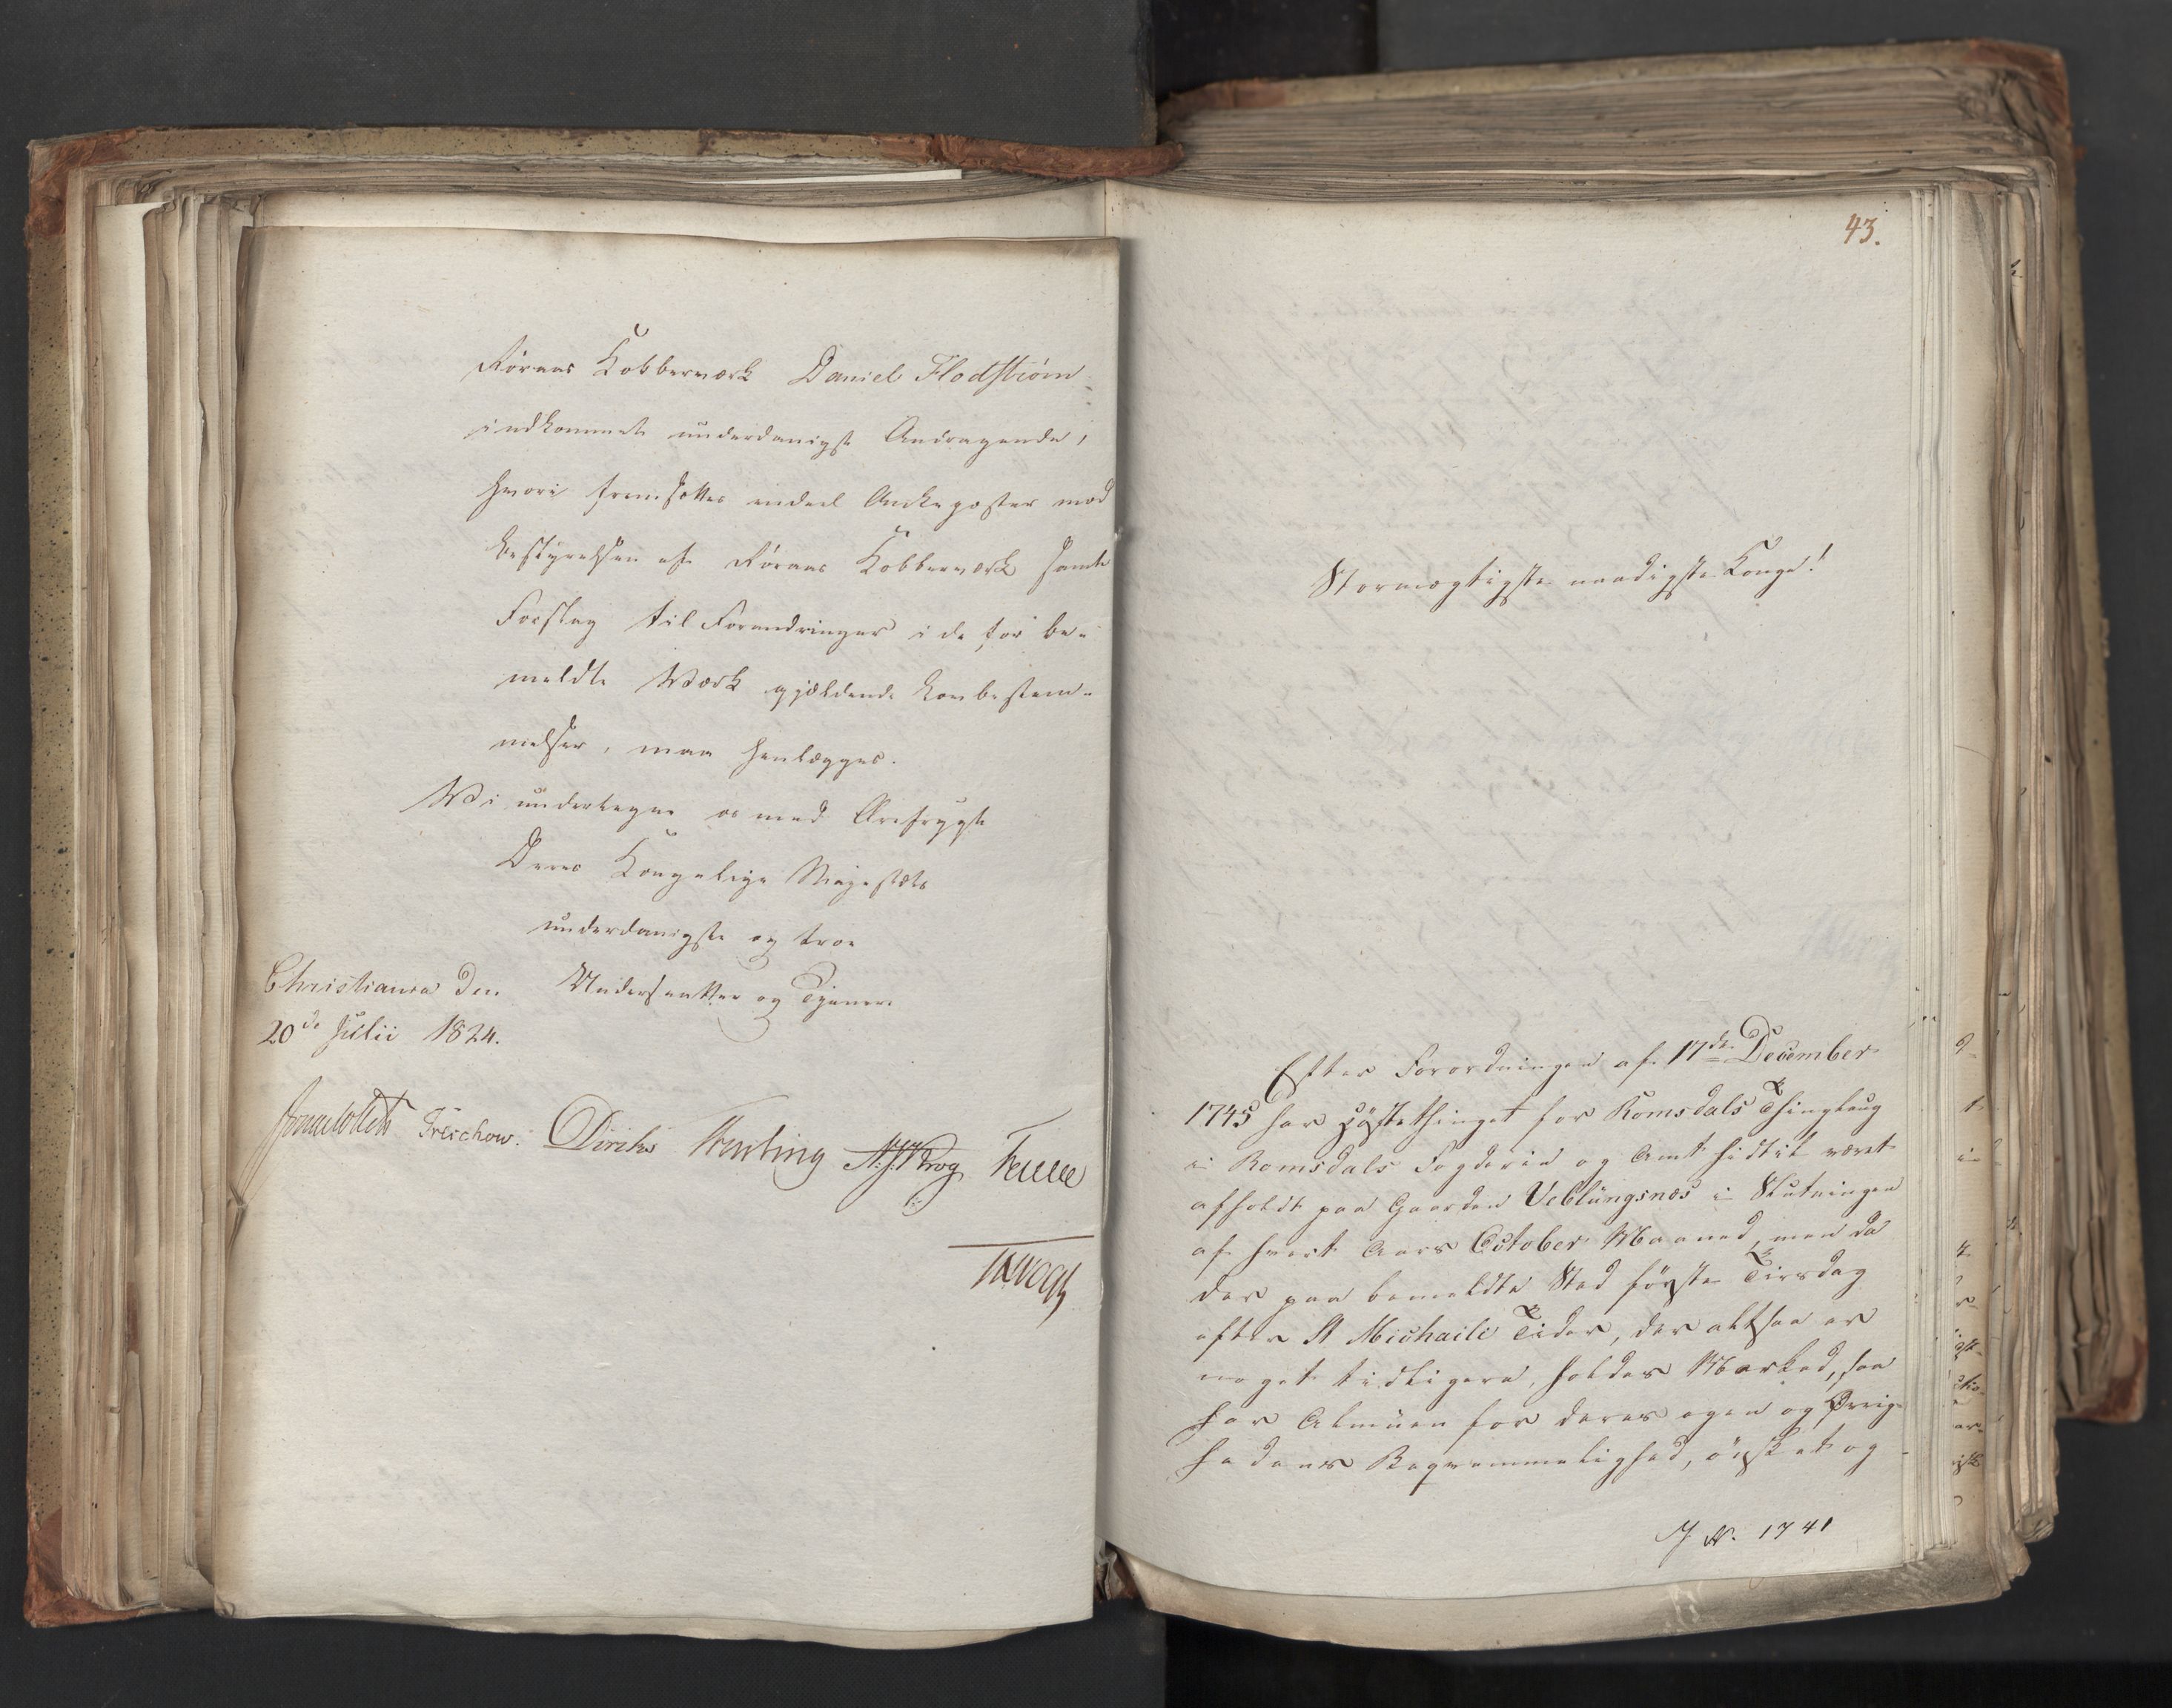 Røraas Kobberværk Daniel Flodstrøm
indkomment underdanigst Andragende,
hvori fremsættes endeel Ankeposter mod
Bestyrelsen af Røraas Kobberværk samt
Forslag til Forandringer i de for be-
meldte Værk gjældende Lovbestem-
melser, maa henlægges.
Vi undertegne os med Ærefrygt
Deres Kongelige Majestæts
underdanigste og troe
Christiania den Undersaatter og Tjenere
20de Julii 1824.
Treschow. Diriks
Krog
43.
Stormægtigste naadigste Konge!
Efter Forordningen af 17de December
1745 har Høstethinget for Romsdals Thinglaug
i Romsdals Fogderie og Amt hidtil været
afholdt paa Gaarden Veblungsnæs i Slutningen
af hvert Aars October Maaned, men da
der paa bemeldte Sted første Tirsdag
efter St Michaili Tider, der altsaa er
noget tidligere, holdes Marked, saa
har Almuen for deres egen og Øvrig-
hedens Beqvemmelighed, ønsket og
J. N. 1741